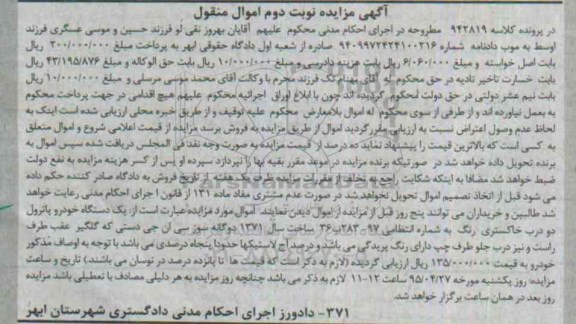 آگهی مزایده نوبت دوم اموال منقول
در پرونده کلاسه ۹۴۲۸۱۹ مطروحه در اجرای احکام مدنی محکوم علیهم آقایان بهروز نقی لو فرزند حسین و موسی عسگری فرزند
اوسط به موجب دادنامه شماره ۹۴۰۹۹۷۲۴۲۴۱۰۰۲۱۶ صادره از شعبه اول دادگاه حقوقی ابهر به پرداخت مبلغ ۲۰۰/۰۰۰/۰۰۰ ریال
بابت اصل خواسته و مبلغ ۶/۰۶۰/۰۰۰ ریال بابت هزینه دادرسی و مبلغ ۱۰/۰۰۰/۰۰۰ ریال بابت حق الوکاله و مبلغ ۴۲/۱۹۵/۸۷۶ ریال
بابت خسارت تاخیر تادیه در حق محکوم له آقای بهنام تک فرزند محرم با وکالت آقای محمد موسی مرسلی و مبلغ ۱۰/۰۰۰/۰۰۰ ریال
بابت نیم عشر دولتی در حق دولت محکوم گردیده اند چون با ابلاغ اوراق اجرائیه محکوم علیهم هیچ اقدامی در جهت پرداخت محکوم
به بعمل نیاورده اند و از طرفی از سوی محکوم له اموال بلامعارض محکوم علیه توقیف و از طریق خبره محلی ارزیابی شده است اینک به
لحاظ عدم وصول اعتراض نسبت به ارزیابی مقرر گردید اموال از طریق مزایده به فروش برسد مزایده از قیمت اعلامی شروع و اموال متعلق
به کسی است که بالاترین قیمت را پیشنهاد نماید ده درصد از قیمت مزایده به صورت وجه نقد فی المجلس دریافت شده سپس اموال به
برنده تحویل داده خواهد شد در صورتیکه برنده مزایده در موعد مقرر بقیه بها را نپردازد سپرده او پس از کسر هزینه مزایده به نفع دولت
ضبط خواهد شد مضافا به اینکه شکایت راجع به تخلف از مقررات مزایده ظرف یک هفته از تاریخ فروش به دادگاه صادر کننده حکم داده
می شود قبل از اتخاذ تصمیم اموال تحویل نخواهد شد در صورت عدم مشتری مفاد ماده ۱۳۱ از قانون اجرای احکام مدنی رعایت خواهد
شد طالبین و خریداران می توانند پنج روز قبل از مزایده از اموال دیدن نمایند. اموال مورد مزایده عبارت است از: یک دستگاه خودرو پاترول
دو درب خاکستری رنگ به شماره انتظامی ۹۷-۲۸۳ب۳۶ ساخت سال ۱۳۷۱ دوگانه سوز سی ان جی دستی که گلگیر عقب طرف
راست و نیز درب جلو طرف چپ دارای رنگ پریدگی می باشد و درصد آج لاستیکها حدودا پنجاه درصدی می باشد با توجه به اوصاف مذکور
خودرو به قیمت ۱۳۵/۰۰۰/۰۰۰ ریال ارزیابی گردیده (لازم به ذکر است که قیمت ها تا پانزده درصد در نوسان می باشند). تاریخ و ساعت
مزایده: روز یکشنبه مورخه ۹۵/۰۴/۲۷ ساعت ۱۲-۱۱ لازم به ذکر می باشد چنانچه روز مزایده به هر دلیلی مصادف با تعطیلی باشد مزایده
روز بعد در همان ساعت برگزار خواهد شد.
۳۷۱- دادورز اجرای احکام مدنی دادگستری شهرستان ابهر